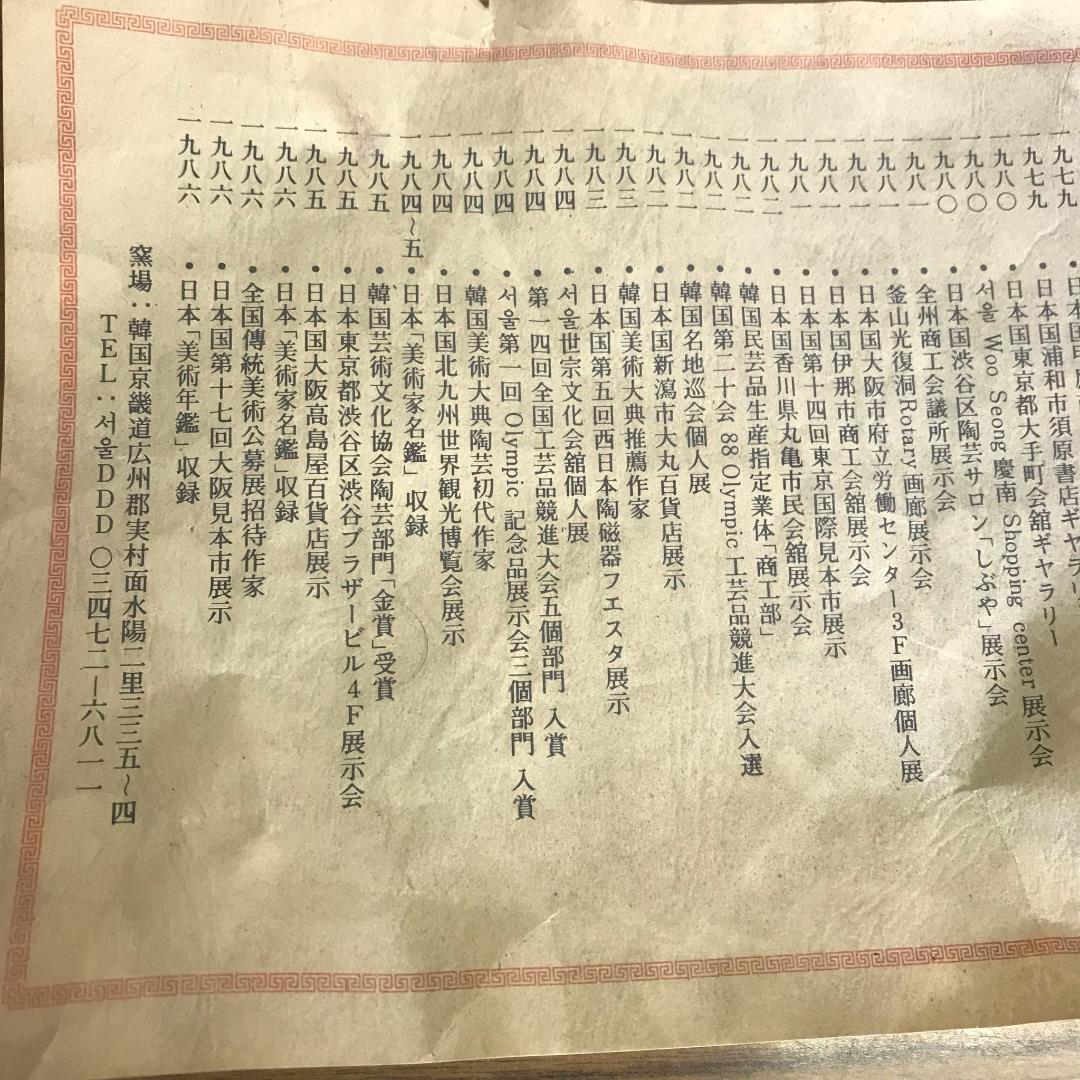 一九七九 ・日本国
一九七九 ・日本国浦和市須原書店ギャラリー
一九八〇 ・日本国東京都大手町会舘ギャラリー
一九八〇 ・서울 Woo Seong 慶南 Shopping center 展示会
一九八〇 ・日本国渋谷区陶芸サロン「しぶや」展示会
一九八一 ・全州商工会議所展示会
一九八一 ・釜山光復洞Rotary画廊展示会
一九八一 ・日本国大阪市府立労働センター3F画廊個人展
一九八一 ・日本国伊那市商工会舘展示会
一九八一 ・日本国第十四回東京国際見本市展示
一九八二 ・日本国香川県丸亀市民会舘展示会
一九八二 ・韓国民芸品生産指定業体「商工部」
一九八二 ・韓国第二十会 88 Olympic 工芸品競進大会入選
一九八二 ・韓国名地巡会個人展
一九八二 ・日本国新潟市大丸百貨店展示
一九八三 ・韓国美術大典推薦作家
一九八三 ・日本国第五回西日本陶磁器フエスタ展示
一九八四 ・서울世宗文化会舘個人展
一九八四 ・第一四回全国工芸品競進大会五個部門 入賞
一九八四 ・서울第一回 Olympic 記念品展示会三個部門 入賞
一九八四 ・韓国美術大典陶芸初代作家
一九八四 ・日本国北九州世界観光博覧会展示
一九八四～五 ・日本「美術家名鑑」収録
一九八五 ・韓国芸術文化協会陶芸部門「金賞」受賞
一九八五 ・日本東京都渋谷区渋谷ブラザービル4F展示会
一九八五 ・日本国大阪高島屋百貨店展示
一九八六 ・日本「美術家名鑑」収録
一九八六 ・全国傳統美術公募展招待作家
一九八六 ・日本国第十七回大阪見本市展示
一九八六 ・日本「美術年鑑」収録
窯場：韓国京畿道広州郡実村面水陽二里三三五～四
TEL：서울DDD〇三四七二―六八一一